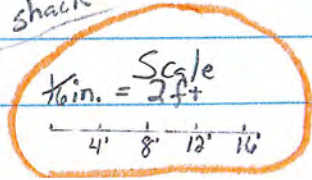 shack
Scale
1/16 in. = 2ft
4' 8' 12' 16'